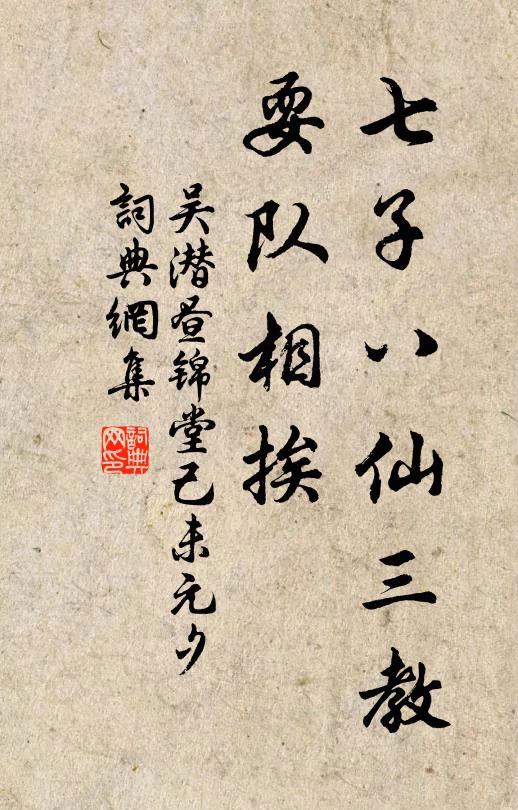 七子八仙三教
耍队相挨
吴潜昼锦堂己未元夕
詞典網集
詞典网印